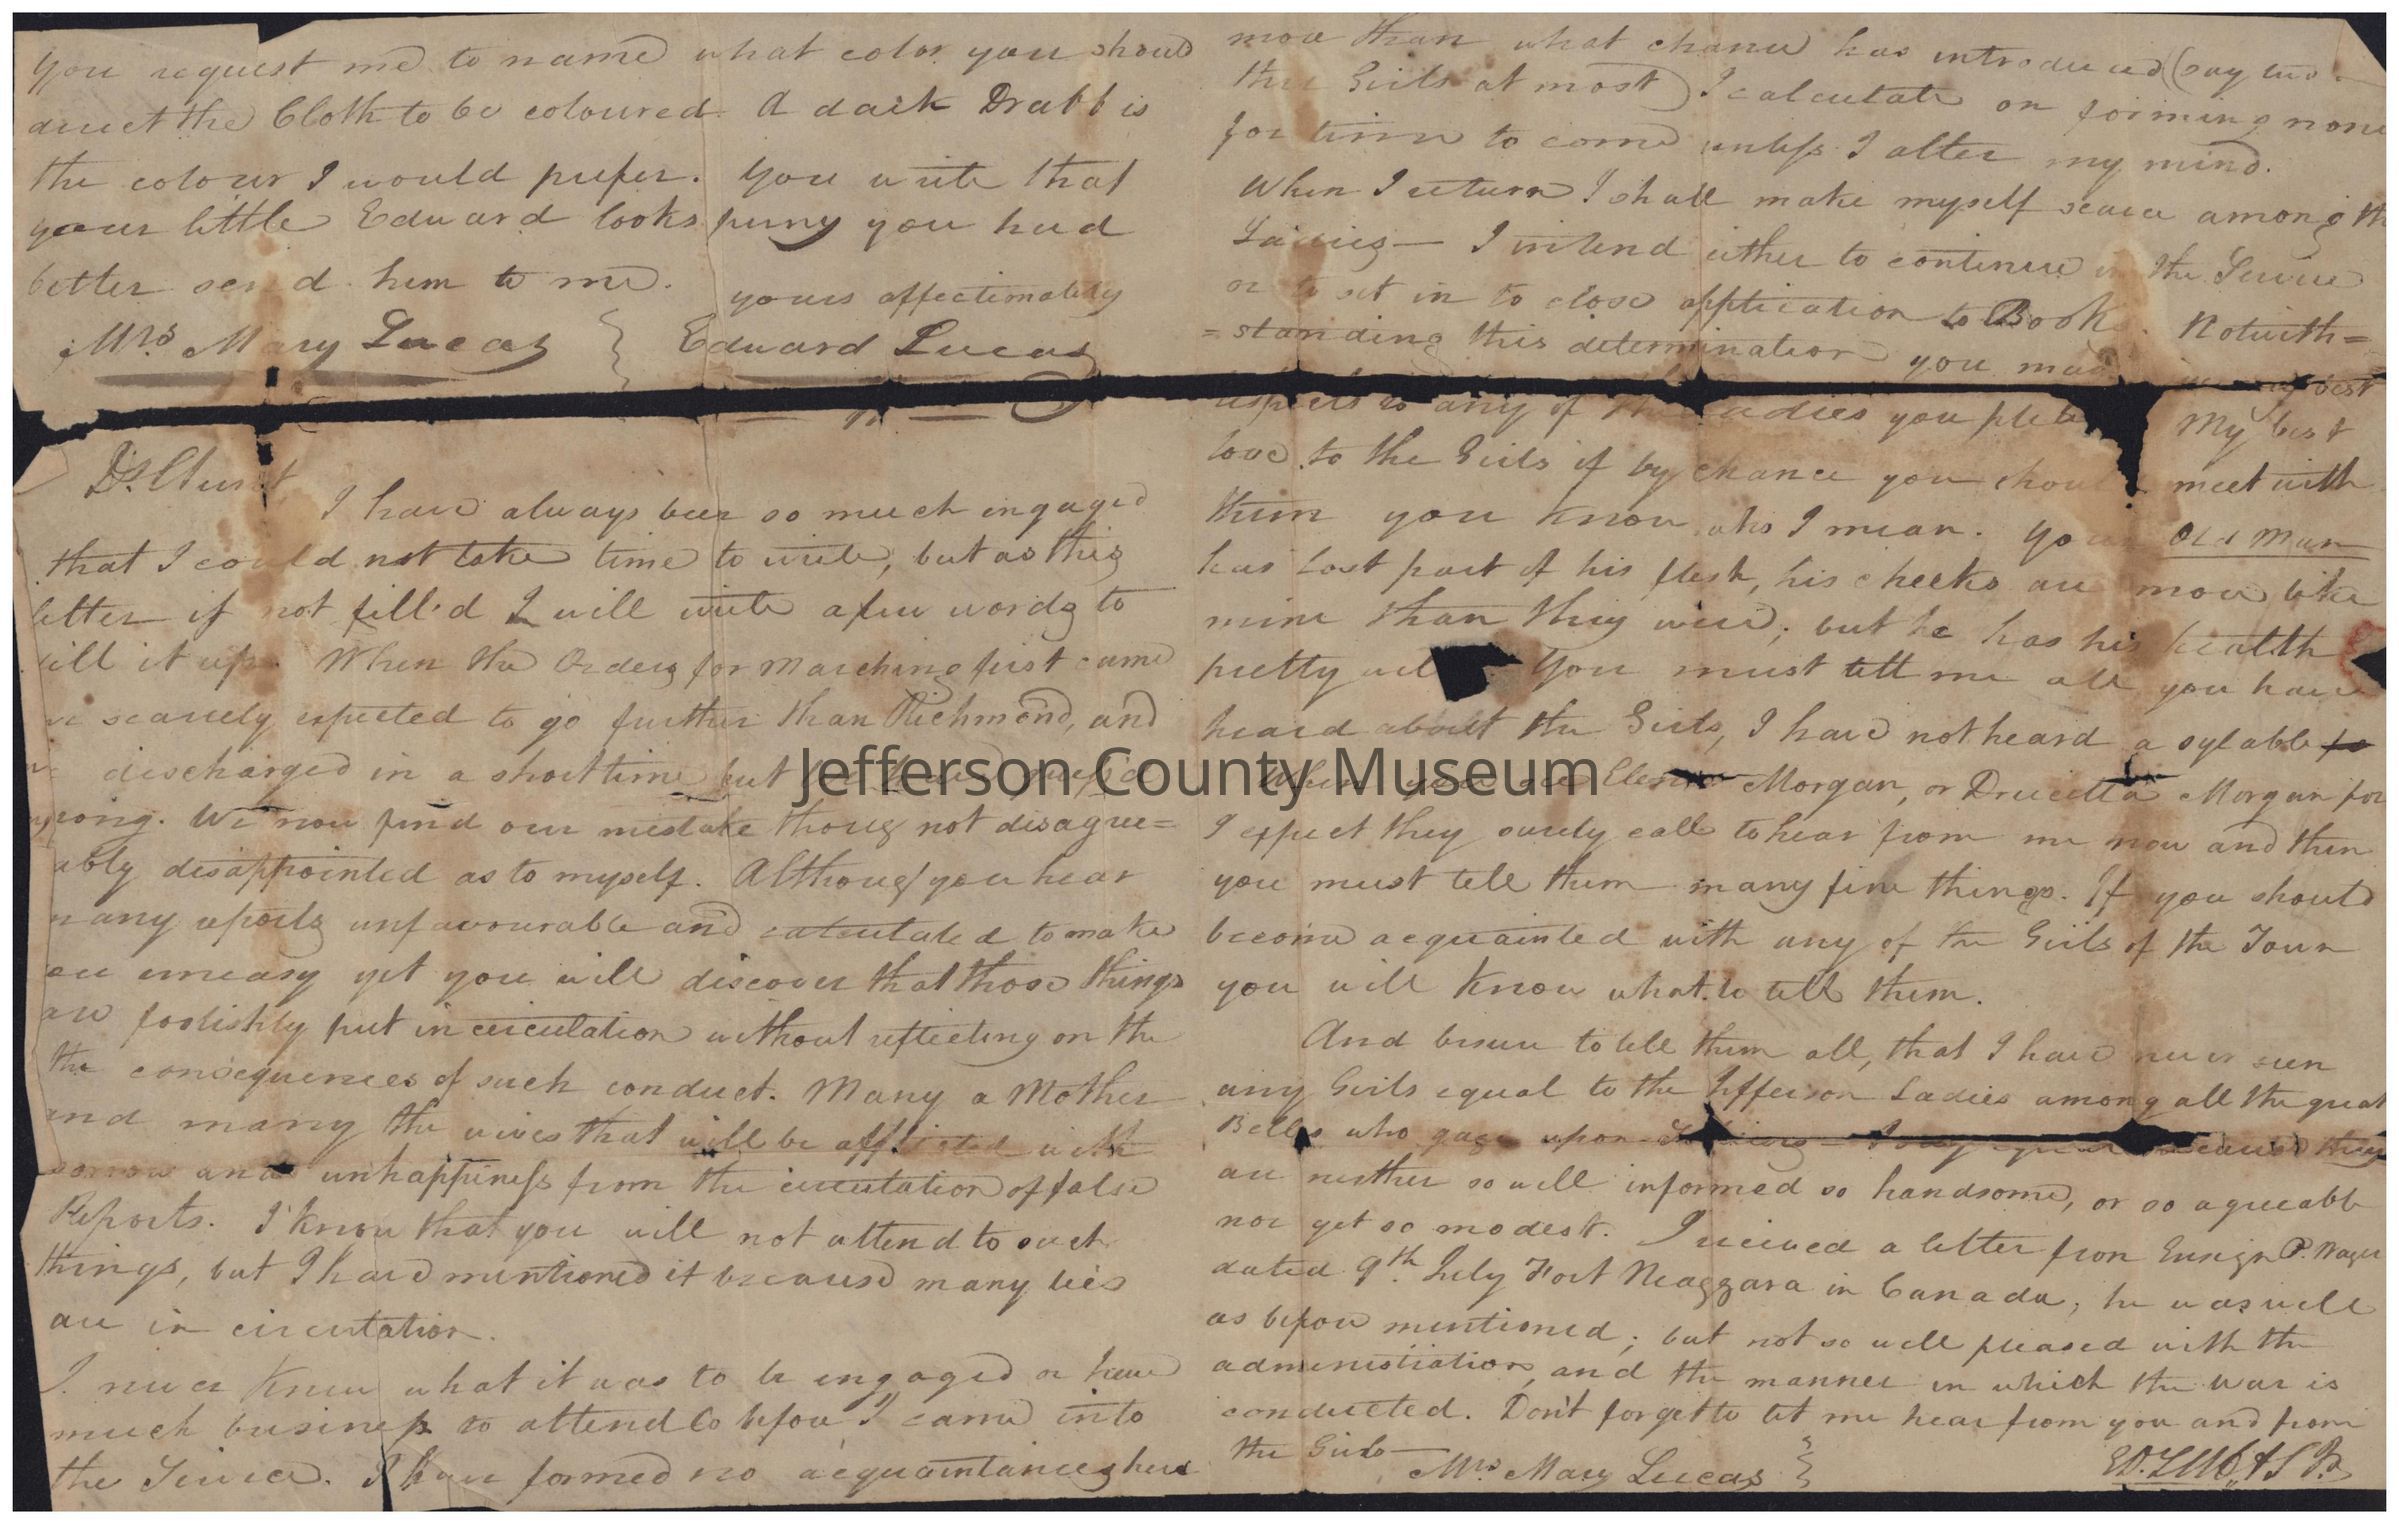 You request me to name what color you should
direct the Cloth to be coloured. A dark Drabb is
the colour I would prefer. You write that
your little Edward looks puny you had
better send him to me.
yours affectionately
Mrs. Mary Lucas } Edward Lucas
Dr. Aunt
I have always been so much engaged
that I could not take time to write, but as this
letter if not fill'd I will write a few words to
fill it up. When the Orders for marching first came
we scarcely expected to go further than Richmond, and
discharged in a short time but
wrong. We now find our mistake thoug not disagree=
ably disappointed as to myself. Althoug you hear
many reports unfavourable and calculated to make
you uneasy yet you will discover that those things
are foolishly put in circulation without reflecting on the
the consequences of such conduct. Many a Mother
and many the wives that will be afflicted with
sorrow and unhappiness from the circulation of false
Reports. I know that you will not attend to such
things, but I have mentioned it because many lies
are in circulation.
I never knew what it was to be engaged or have
much business to attend to before I came into
the Service. I have formed no acquaintances here
more than what chance has introduced (say two
three Girls at most) I calculate on forming none
for time to come unless I alter my mind.
When I return I shall make myself scarce among the
Ladies— I intend either to continue in the Service
or to set in to close application to Books. Notwith=
=standing this determination you may
respects to any of the Ladies you please My best
love to the Girls if by chance you should meet with
them you know who I mean. Your Old Man
has lost part of his flesh, his cheeks are more like
mine than they were; but he has his health
pretty well. You must tell me all you have
heard about the Girls, I have not heard a sylable
When you see Elenor Morgan, or Drucilla Morgan for
I expect they surely call to hear from me now and then
you must tell them many fine things. If you should
become acquainted with any of the Girls of the Town
you will know what to tell them.
And besure to tell them all, that I have never seen
any Girls equal to the Jefferson Ladies among all the great
Bells who gaze upon because they
are neither so well informed so handsome, or so agreeable
nor yet so modest. I recieved a letter from Ensign P.
dated 9th July Fort Neaggara in Canada, he was well
as before mentioned; but not so well pleased with the
administration, and the manner in which the war is
conducted. Don't forget to let me hear from you and from
the Girls—
Mrs Mary Lucas }
Jefferson County Museum